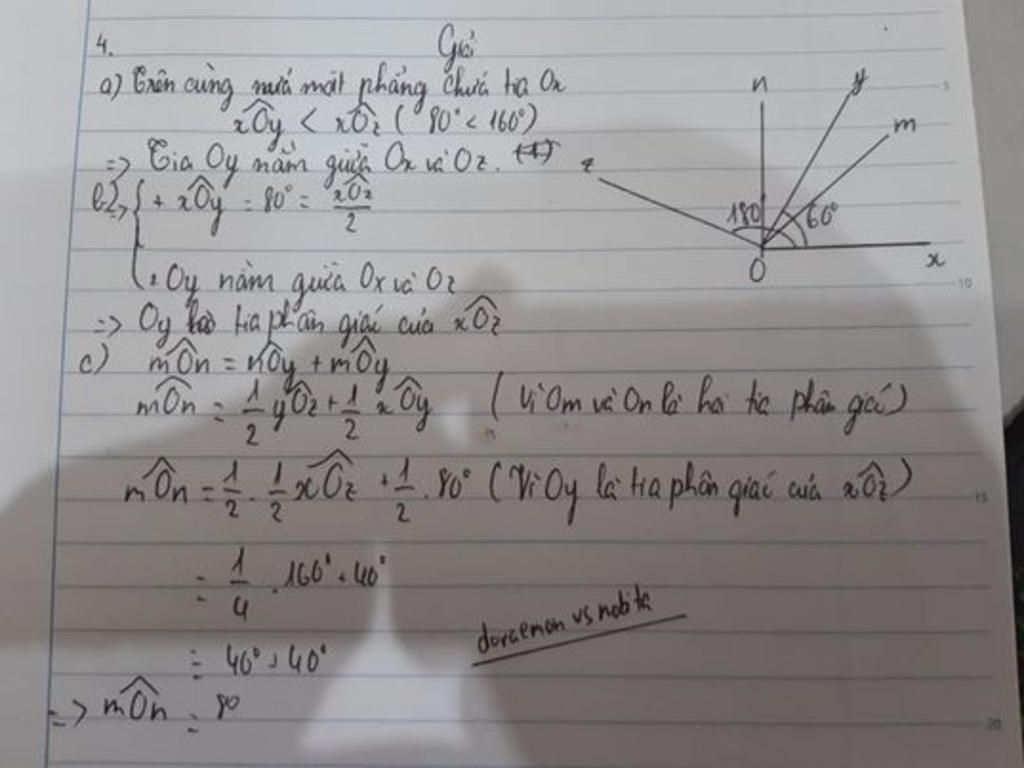 4. Giải
a) Trên cùng nửa mặt phẳng chứa tia Ox
xÔy < xÔz (80° < 160°)
=> Tia Oy nằm giữa Ox và Oz. (1)
b) => { + xÔy = 80° = xÔz/2
+ Oy nằm giữa Ox và Oz
=> Oy là tia phân giác của xÔz
c) mÔn = nÔy + mÔy
mÔn = 1/2 yÔz + 1/2 xÔy (Vì Om và On là hai tia phân giác)
mÔn = 1/2 . 1/2 xÔz + 1/2 . 80° (Vì Oy là tia phân giác của xÔz)
= 1/4 . 160° + 40°
= 40° + 40°
=> mÔn = 80
doraemon vs nobita
n y
m
z
180 60°
O x
5
10
15
20